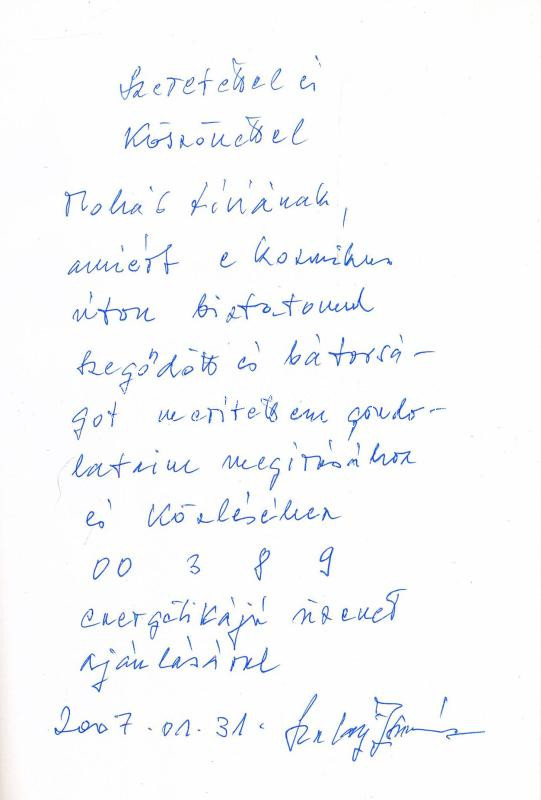 Szeretettel és
Köszönettel
Mohás Líviának,
amiért e kozmikus
úton biztatomul
szegődött és bátorsá-
got merítettem gondo-
lataim megírásához
és közléséhez
00 3 8 9
energetikájú üzenet
ajánlásával
2007.01.31.